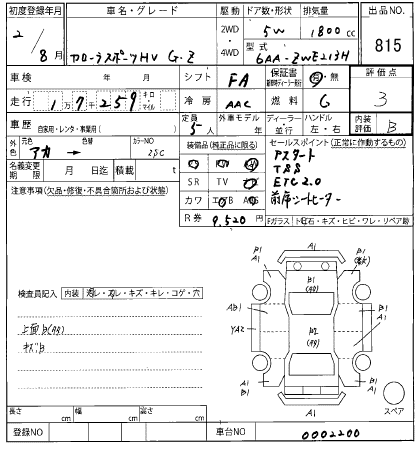 初度登録年月
車名・グレード
駆動
ドア数・形状
排気量
出品NO.
2/8月
カローラスポーツHV G-Z
2WD
・
4WD
5W
1800cc
型式
6AA-ZWE213H
815
車検 年 月
シフト
FA
保証書
有・無
評価点
走行
1万7千259
キロ・マイル
冷房
AAC
燃料
G
3
車歴
自家用・レンタ・事業用( )
定員
5人
外車モデル
年
ディーラー・並行
ハンドル
左・右
内装評価
B
外色
元色
アカ
色替
カラーNO
25C
装備品(純正品に限る)
セールスポイント(正常に作動するもの)
Pスタート
TSS
ETC2.0
前席シートヒーター
名義変更期限 月 日迄
積載 t
SR TV
カワ
R券 9,520円
注意事項(欠品・修復・不具合箇所および状態)
Fガラス
飛石・キズ・ヒビ・ワレ・リペア跡
検査員記入
内装
汚レ・スレ・キズ・キレ・コゲ・穴
上面B(AR)
キズB
A1
B1
A1
B1
A1
B1
AB1
YA2
B2
B1
A1
3
A1
B1
B1
A1
A1
スペア
長さ cm
幅 cm
高さ cm
登録NO
車台NO
0002200